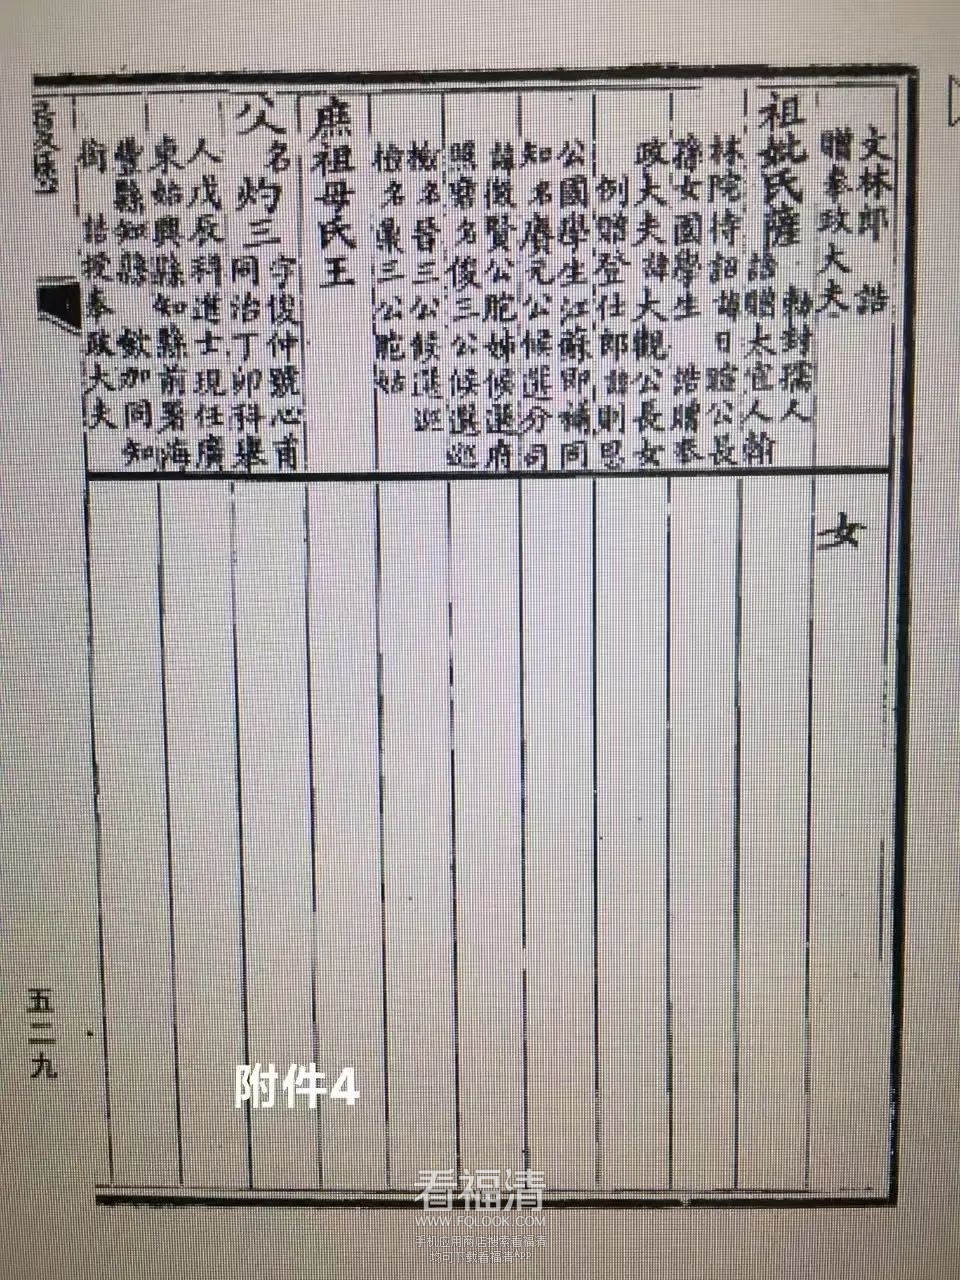 文林郎　誥
贈奉政大夫
女
祖妣氏薩　勅封孺人
誥贈太宜人翰
林院待詔諱日瑄公長
孫女國學生　誥贈奉
政大夫諱大觀公長女
例贈登仕郎諱則思
公國學生江蘇即補同
知名賡元公候選分司
諱徵賢公胞姊候選府
照磨名俊三公候選巡
檢名晉三公候選巡
檢名鼎三公胞姑
庶祖母氏王
父名灼三字俊仲號心甫
同治丁卯科舉
人戊辰科進士現任廣
東始興縣知縣前署海
豐縣知縣　欽加同知
銜　誥授奉政大夫
五二九
附件4
看福清
WWW.FQLOOK.COM
手机应用商店搜索看福清
均可下载看福清APP